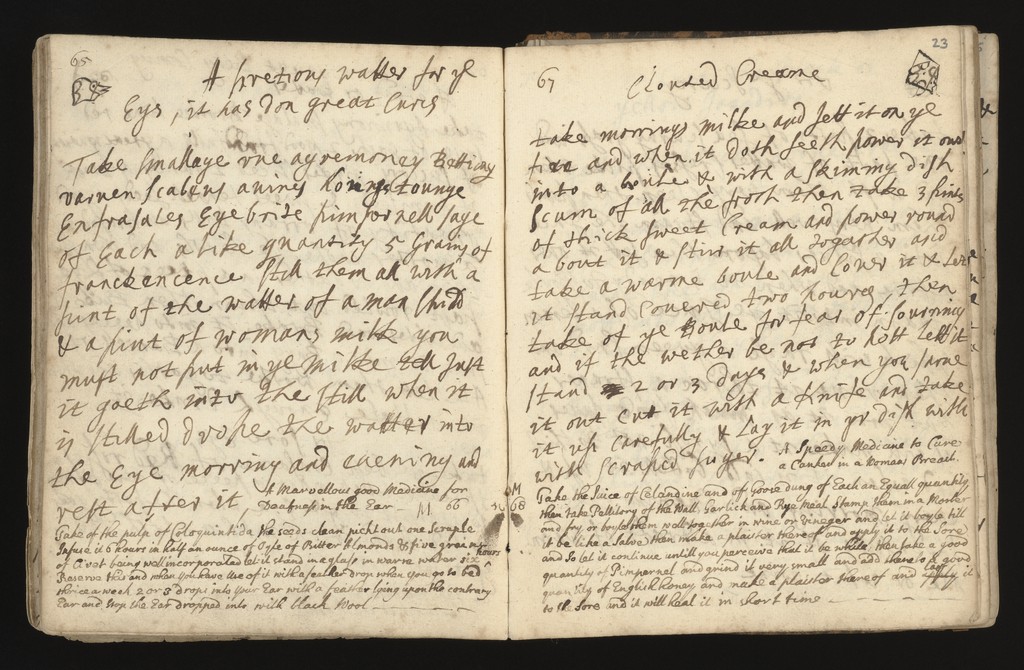 65
A pretious watter for ye
Eys, it has Don great Cures
Take smallage rue agremoney Bettiony
varven Scabeus avines Houngs Toungе
Enfrasales Eyebrite pimpornell sage
of Each a like quantity 5 Grains of
franckencence still them all with a
pint of the watter of a man Child
& a pint of womans milke you
must not put in ye milke tell Just
it goeth into the still when it
is stilled Drope the watter into
the Eye morning and evening and
rest after it
A Marvellous good Medicine for
Deafness in the Ear M 66
Take of the pulp of Coloquintida the seeds clean pickt out one scruple
Infuse it 6 hours in half an ounce of Oyle of Bitter Almonds & five grains
of Civet being well incorporated let it stand in a glass in warm water six hours
Reserve this and when you have use of it with a feather drop when you go to bed
thrice a week 2 or 3 drops into your Ear with a feather lying upon the contrary
Ear and stop the Ear dropped into with black Wool
23
67
Clouted Creame
take mornings milke and sett it on ye
fire and when it doth seeth power it out
into a boule & with a skimming dish
Scum of all the froth then take 3 pints
of thick sweet Cream and power round
about it & stirr it all togather and
take a warme boule and Cover it & Lett
it stand Covered two houres, then
take of ye Boule for fear of souering
and if the wether be not to hott lett it
stand 2 or 3 days & when you
it out Cutt it with a knife and take
it up Carefully & Lay it in yr dish with
with scraped suger.
A Speedy Medicine to Cure
a Canker in a Womans Breast.
M 68
Take the Juice of Celandine and of Goose dung of Each an Equall quantity
then take Pellitory of the Wall, Garlick and Rye Meal stamp them in a Morter
and fry or boyle them well together in wine or Vineger and let it boyle till
it be like a Salve then make a plaister thereof and apply it to the Sore
and so let it continue untill you perceive that it be white, then take a good
quantity of Pimpernel and grind it very small and add thereto a good
quantity of English honey and make a plaister thereof and apply it
to the Sore and it will heal it in short time